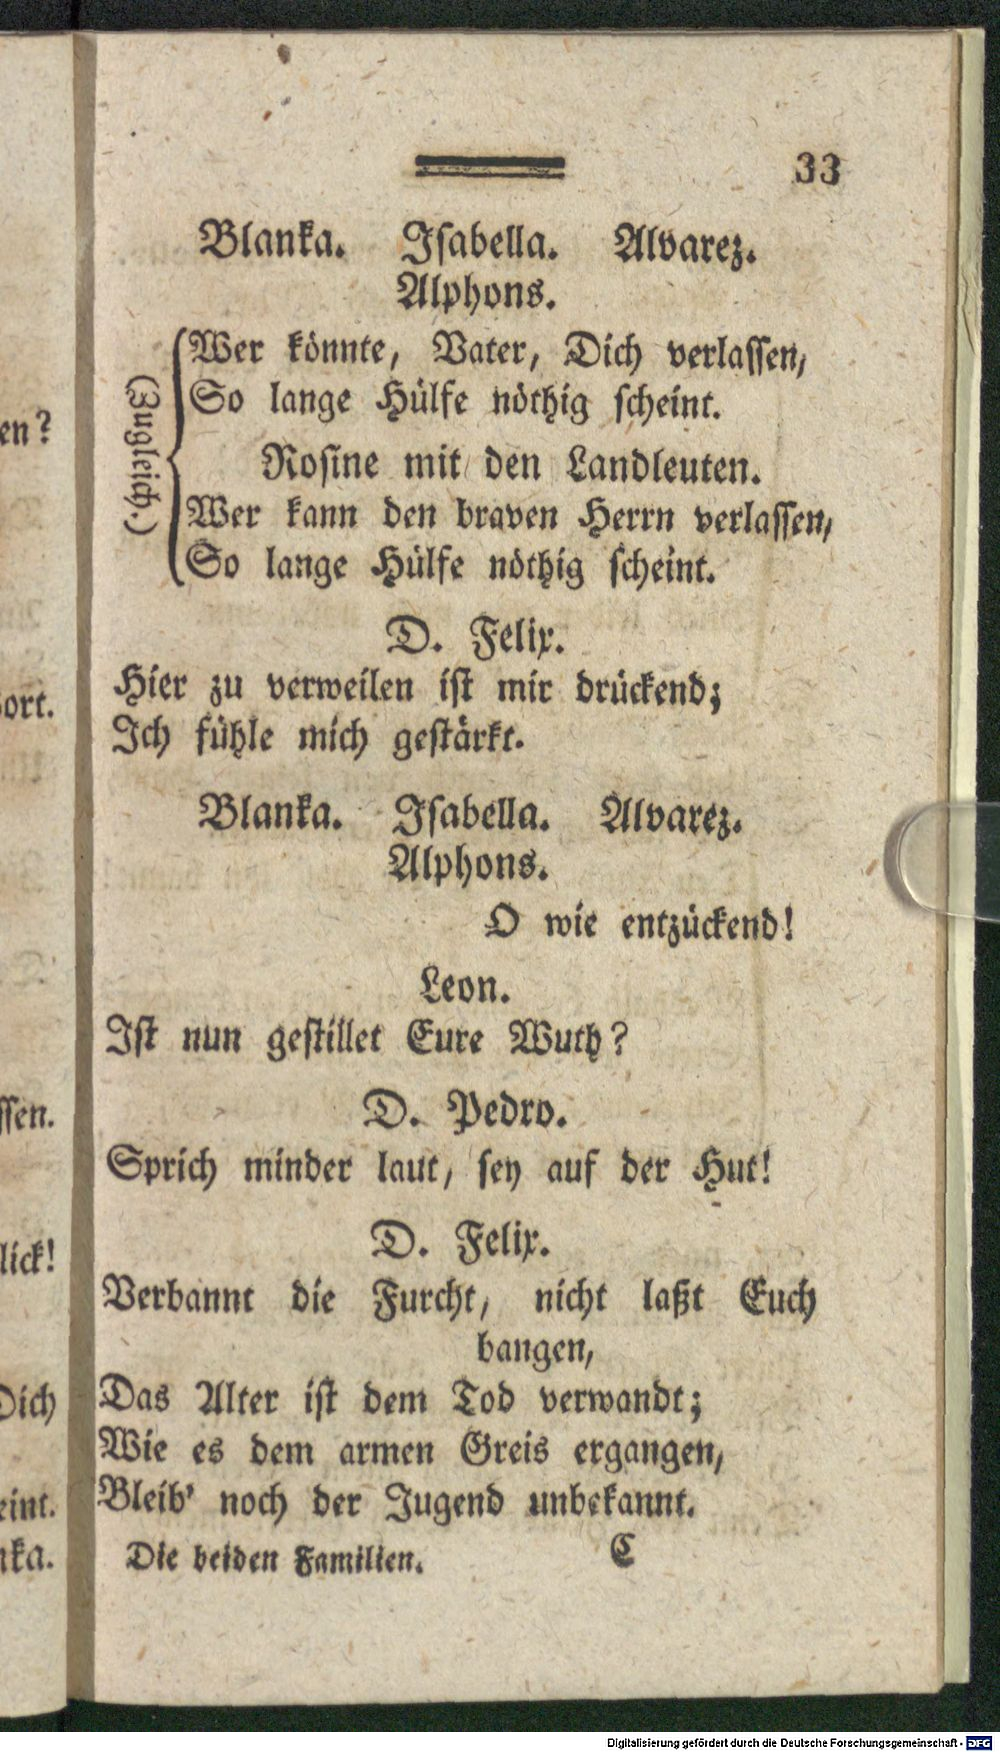 33
Blanka. Isabella. Alvarez.
Alphons.
(Zugleich.)
Wer könnte, Vater, Dich verlassen,
So lange Hülfe nöthig scheint.
Rosine mit den Landleuten.
Wer kann den braven Herrn verlassen,
So lange Hülfe nöthig scheint.
D. Felix.
Hier zu verweilen ist mir drückend;
Ich fühle mich gestärkt.
Blanka. Isabella. Alvarez.
Alphons.
O wie entzückend!
Leon.
Ist nun gestillet Eure Wuth?
D. Pedro.
Sprich minder laut, sey auf der Hut!
D. Felix.
Verbannt die Furcht, nicht laßt Euch
bangen,
Das Alter ist dem Tod verwandt;
Wie es dem armen Greis ergangen,
Bleib' noch der Jugend unbekannt.
Die beiden Familien. C
en?
ort.
ssen.
lick!
Dich
eint.
nka.
Digitalisierung gefördert durch die Deutsche Forschungsgemeinschaft - DFG